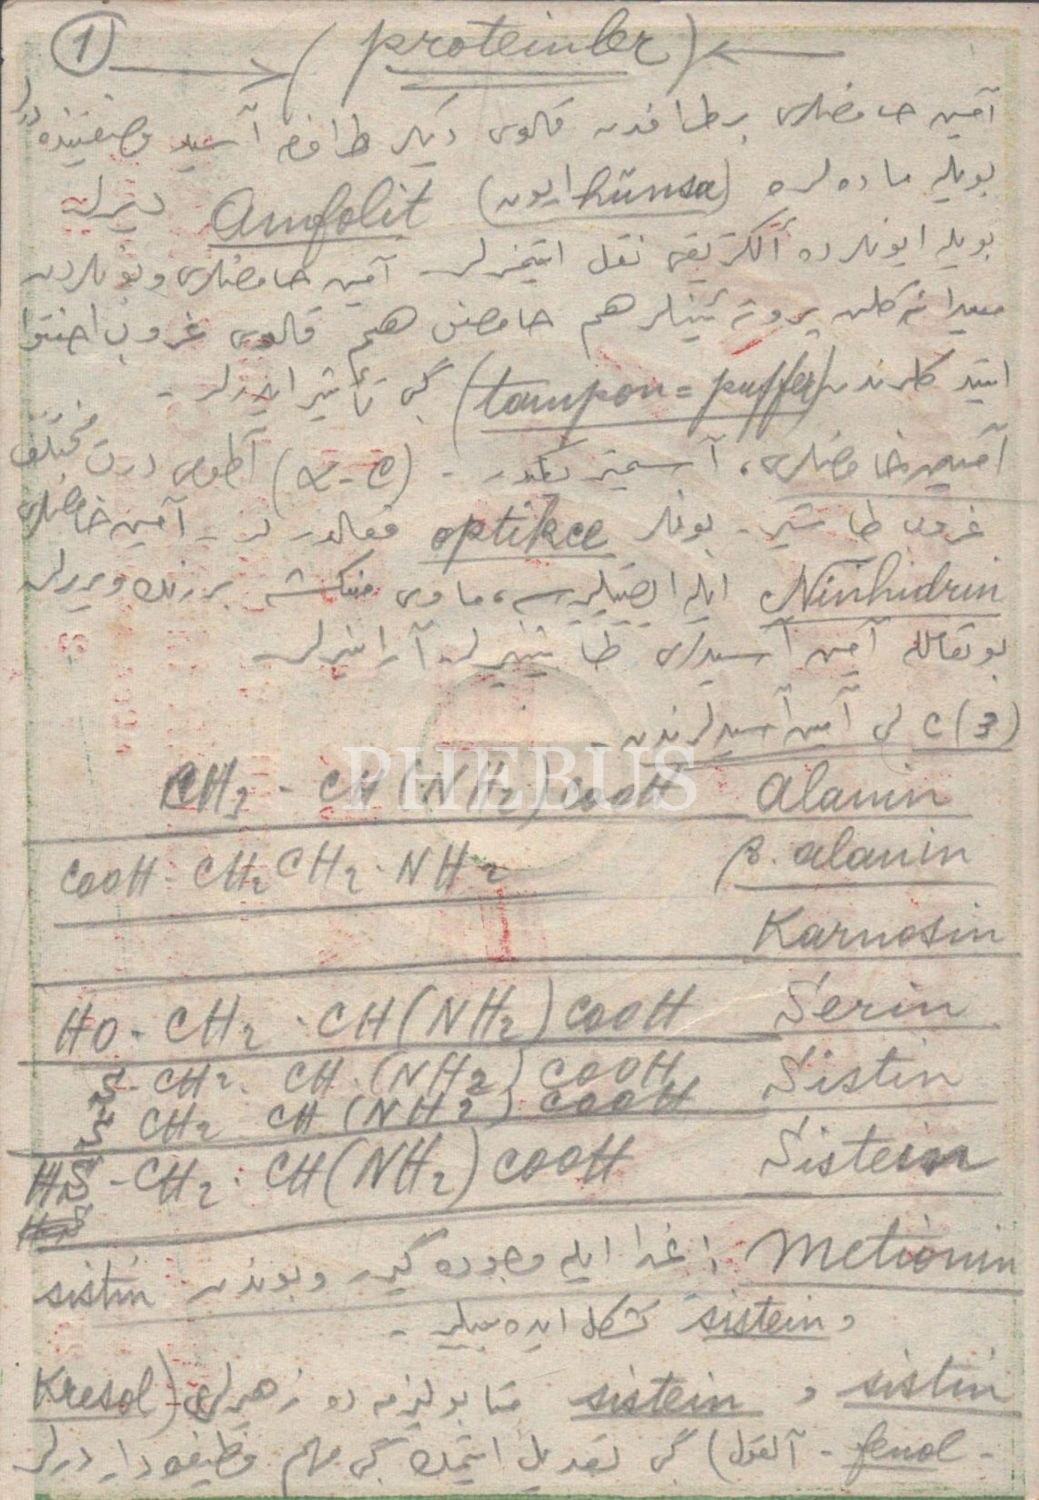 ① (proteinler)
آمین حامضلری بر طرفدن قلوی دیگر طرفدن آسید وصفنده در
بویله ماده لره (hünsa ایون) Amfolit دیرلر
بویله ایونلرده الکتریقی نقل ایتمزلر. آمین حامضلری و بونلردن
میدانه کلن پروته ئینلر هم حامضی هم قلوی غروب احتوا
ایتدکلرندن (tampon = puffer) گبی تأثیر ایدرلر -
آمین حامضلری، آسیمتریکدر - (α - C) آطومی درت مختلف
غروب طاشیر - بونلر optikce فعالدرلر - آمین حامضلری
Ninhidrin ایله ایصیتیلیرسه، ماوی منکشه بر رنك ویریرلر
بو آمین آسیدلری آرانیرلر
C (3) لی آمین آسیدلرندن
CH3 - CH(NH2)COOH Alanin
COOH - CH2 CH2 - NH2 β. alanin
Karnosin
HO - CH2 - CH(NH2)COOH Serin
S - CH2 - CH.(NH2)COOH Sistin
S CH2 CH(NH2)COOH
HS - CH2 . CH(NH2)COOH Sistein
Metionin غدا ایله وجوده گیرر و بوندن sistin
و sistein تشکل ایده بیلیر -
sistin و sistein متابولیزمه ده زهرلری (Kresol
- fenol - آلقول) گبی تعدیل ایتمك گبی مهم وظیفه دار درلر
PHEBUS